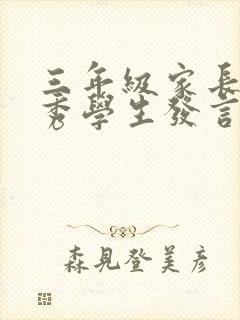 三年級家長
秀學生發言
森見登美彥